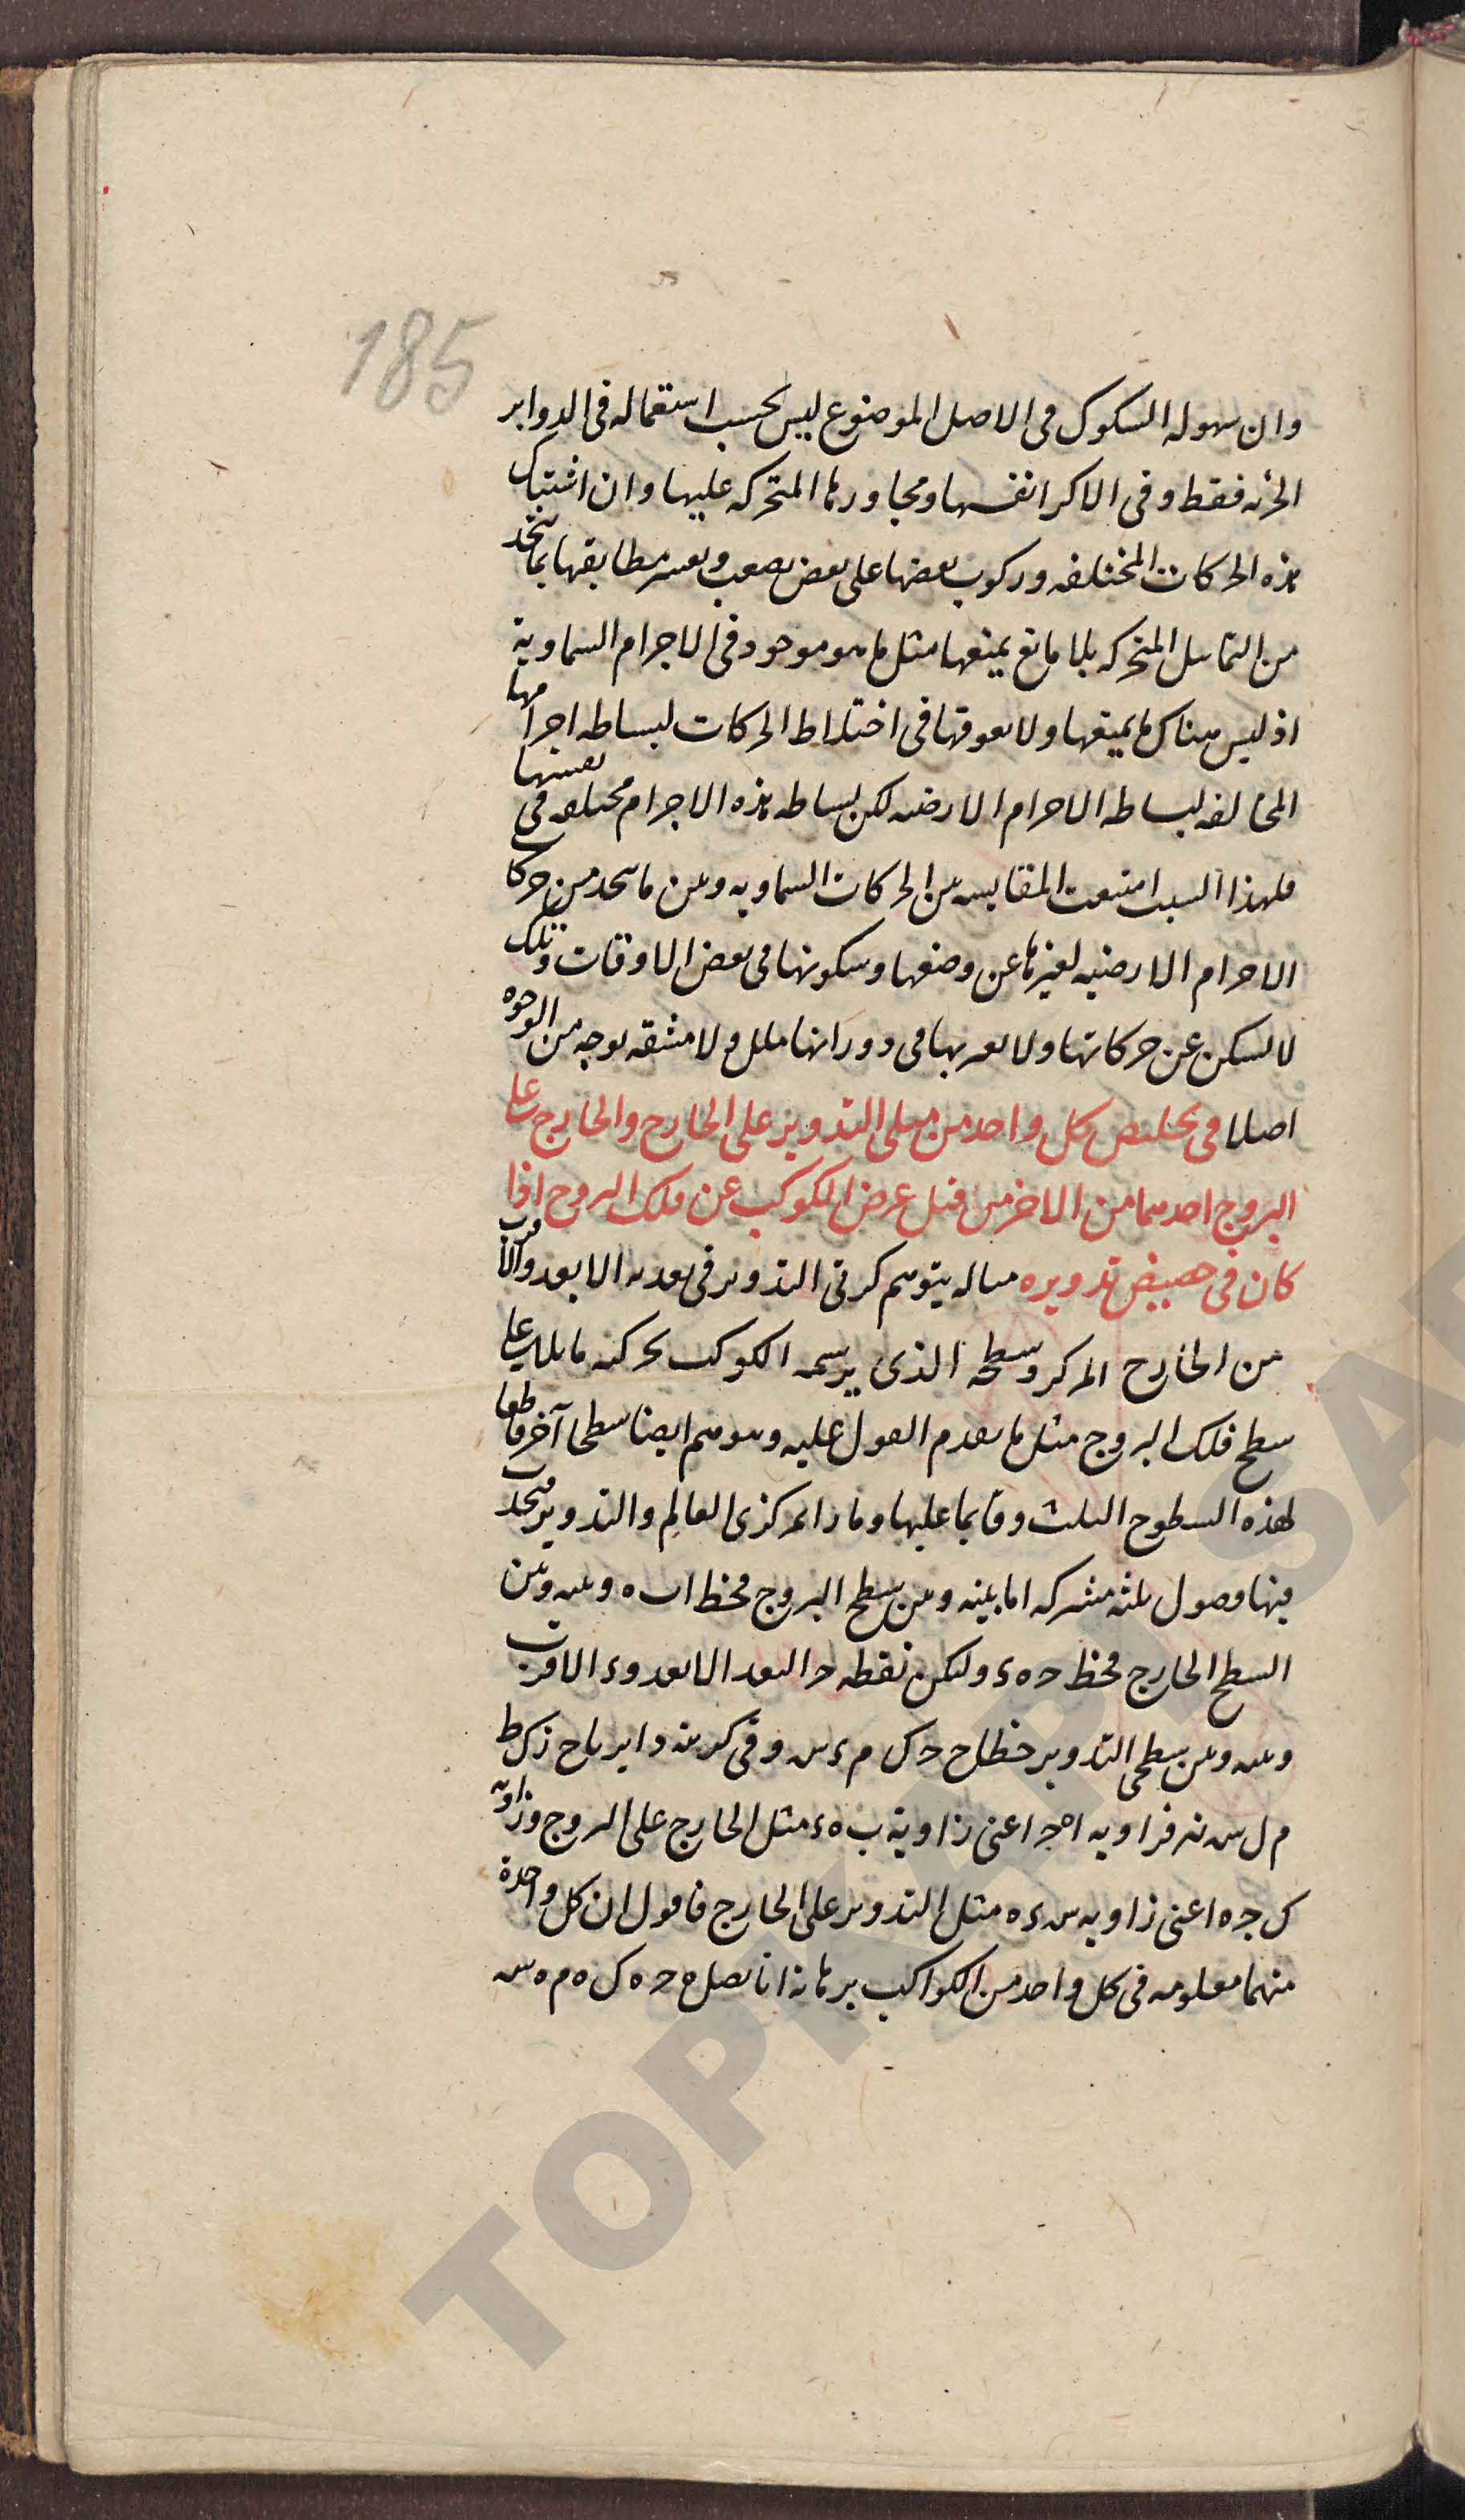 185
وان سهوله السكوك فى الاصل الموضوع ليس بحسب استعماله فى الدواير
الجزئه فقط وفى الاكر انفسها ومجاورتها المتحركه عليها وان اشتباك
هذه الحركات المختلفه وركوب بعضها على بعض يصعب ويعسر مطابقتها بما نتخد
من التماثيل المتحركه بلا مانع يمنعها مثل ما هو موجود فى الاجرام السماوية
اذ ليس هناك ما يمنعها ولا يعوقها فى اختلاط الحركات لبساطه اجرامها
المخالفه لبساطه الاجرام الارضيه لكن بساطه هذه الاجرام مختلفه فى نفسها
فلهذا السبب امتنعت المقايسه بين الحركات السماويه وبين ما يتخد من حركا
الاجرام الارضيه لغيرها عن وضعها وسكونها فى بعض الاوقات وتلك
لا تسكن عن حركاتها ولا يعريها فى دورانها ملل ولا مشقه بوجه من الوجوه
اصلا فى تخليص كل واحد من ميلى التدوير على الخارج والخارج على
البروج احدهما من الاخر من قبل عرض الكوكب عن فلك البروج اذا
كان فى حضيض تدويره مثاله يتوهم كرتى التدوير فى بعديه الابعد والاقرب
من الخارج المركز وسطحه الذى يرسمه الكوكب بحركته مايلا على
سطح فلك البروج مثل ما تقدم القول عليه ونتوهم ايضا سطحا آخر قاطعا
لهذه السطوح الثلث وقايما عليها ومارا بمركزى العالم والتدوير فيحدث
فيها فصول ثلثه مشتركه اما بينه وبين سطح البروج فخط اب ه وبينه وبين
السطح الخارج فخط ح ه ء ولتكن نقطه ح البعد الابعد وء الاقرب
وبينه وبين سطحى التدوير خطا ح ك م ء س وفى كرتيه دايرتا ح ز ك ط
م ل س نه فزاويه ا ه ج اعنى زاوية ب ه ء مثل الخارج على البروج وزاويه
ك ج ه اعنى زاويه س ء ه مثل التدوير على الخارج فاقول ان كل واحدة
منهما معلومه فى كل واحد من الكواكب برهانه انا نصل ح ه ك ه م ه س